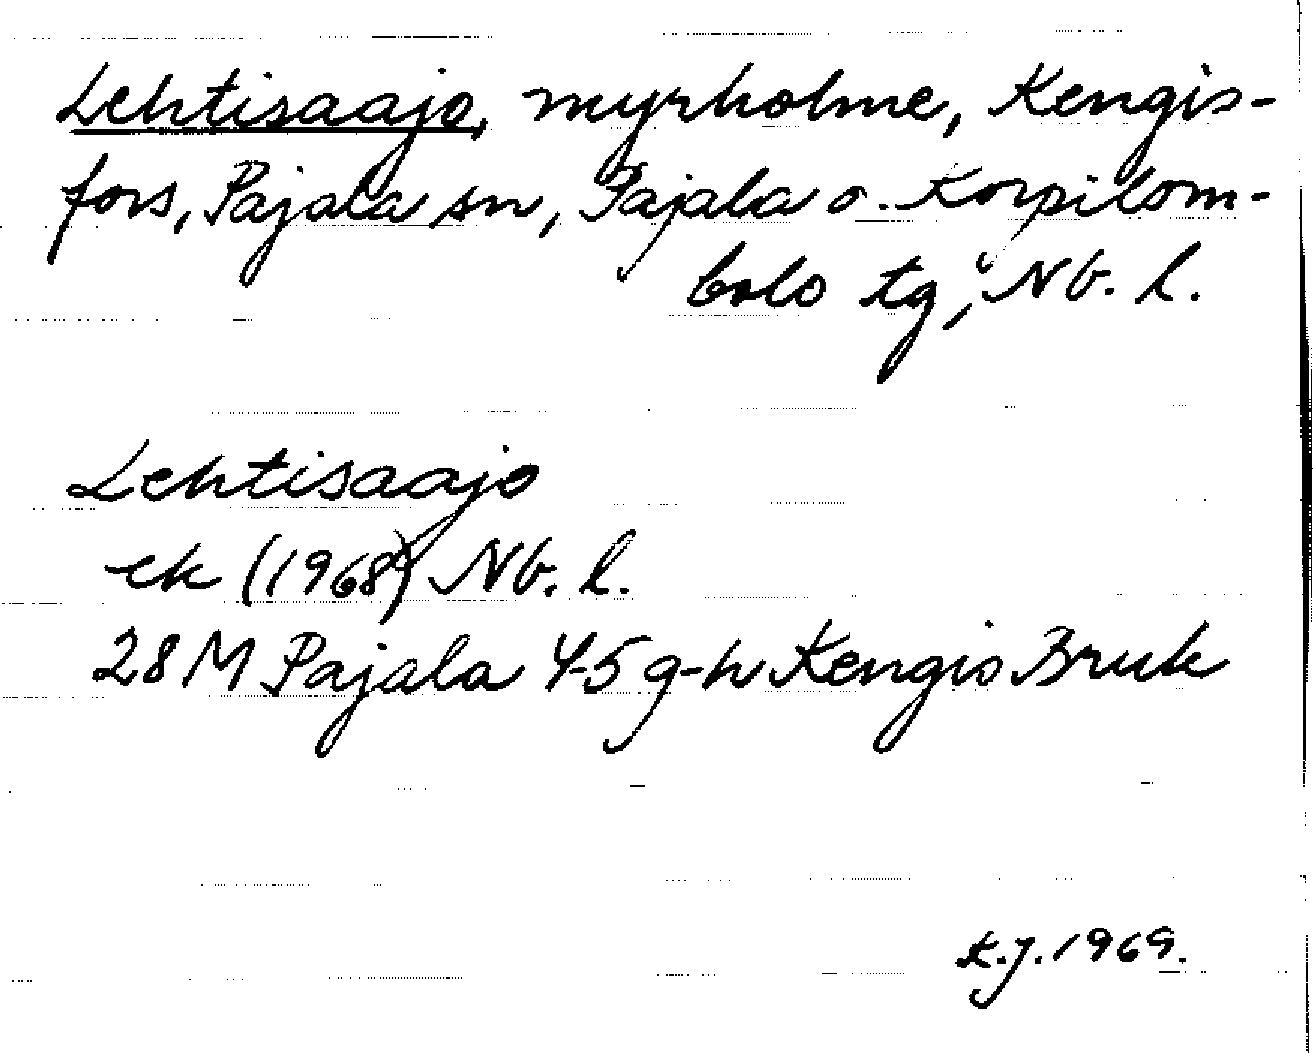 Lehtisaajo, myrholme, Kengis-
fors, Pajala sn, Pajala o. Korpilom-
bolo tg, Nb. l.
Lehtisaajo
ek (1968) Nb. l.
28 M Pajala 4-5 g-h Kengis Bruk
K.J. 1969.